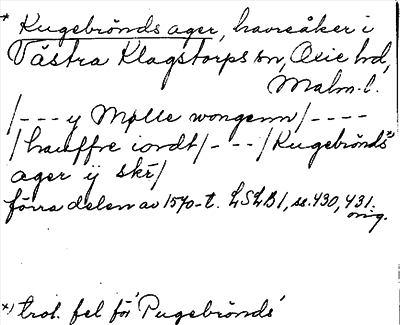 * Kugebrönds ager, havreåker i
Västra Klagstorps sn, Oxie hd,
Malm. l.
/--- y Mølle wongenn/----
/hauffre iordt/---/Kugebrönds x)
ager ij skr/
förra delen av 1570-t. LSLB1, ss. 430, 431.
orig.
x) trol. fel för 'Pugebrönds'